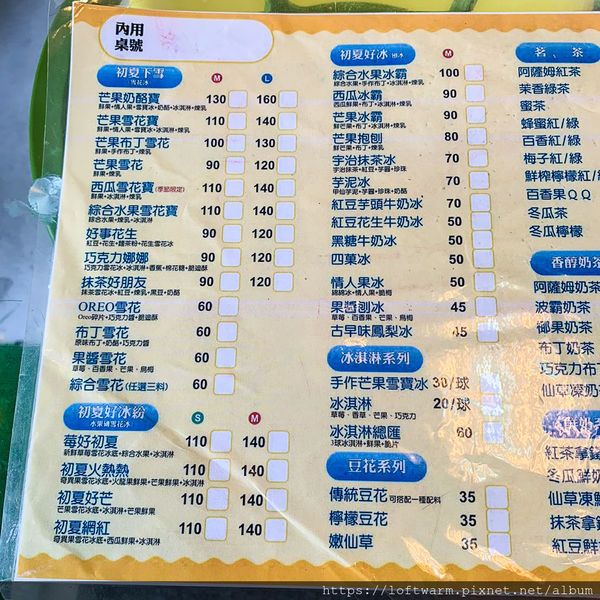 內用
桌號
初夏下雪
雪花冰
M
L
芒果奶酪寶 130 160
鮮果+情人果+雪寶冰+奶酪+冰淇淋+煉乳
芒果雪花寶 110 140
鮮果+情人果+雪寶冰+冰淇淋+煉乳
芒果布丁雪花 100 130
鮮果+手作布丁+煉乳
芒果雪花 90 120
鮮果+煉乳
西瓜雪花寶(季節限定) 110 140
鮮果+冰淇淋+煉乳
綜合水果雪花寶 110 140
綜合水果+煉乳+冰淇淋
好事花生 90 120
紅豆+花生+麵茶粉+花生雪花冰
巧克力娜娜 90 120
巧克力雪花冰+冰淇淋+香蕉+棉花糖+脆迪酥
抹茶好朋友 90 120
抹茶雪花冰+紅豆+煉乳+黑豆+奶酪
OREO雪花 60
Oreo碎片+巧克力醬+脆迪酥
布丁雪花 60
原味布丁+奶酪+巧克力醬
果醬雪花 60
草莓、百香果、芒果、烏梅
綜合雪花(任選三料) 60
初夏好冰紛
水果磚雪花冰
S
M
莓好初夏 110 140
新鮮草莓雪花冰底+綜合水果+冰淇淋
初夏火熱熱 110 140
奇異果雪花冰底+火龍果鮮果+芒果鮮果+冰淇淋
初夏好芒 110 140
芒果雪花冰底+冰淇淋+芒果鮮果
初夏網紅 110 140
奇異果雪花冰底+西瓜鮮果+冰淇淋
初夏好冰
M
綜合水果冰霸 100
綜合水果+手作布丁+冰淇淋+煉乳
西瓜冰霸 90
西瓜鮮果+布丁+冰淇淋+煉乳
芒果冰霸 90
鮮芒果+布丁+冰淇淋+煉乳
芒果抱刨 80
鮮芒果+布丁+煉乳
宇治抹茶冰 70
宇治抹茶+紅豆+芋圓+珍珠
芋泥冰 70
甲仙芋泥+芋圓+珍珠+奶酪
紅豆芋頭牛奶冰 70
紅豆花生牛奶冰 50
黑糖牛奶冰 50
四菓冰 50
情人果冰 50
綿綿冰+情人果+脆梅
果醬刨冰 45
草莓、百香果、芒果、烏梅
古早味鳳梨冰 45
冰淇淋系列
手作芒果雪寶冰 30/球
冰淇淋 20/球
草莓、香草、芒果、巧克力
冰淇淋總匯 60
3球冰淇淋+鮮果+脆片
豆花系列
傳統豆花 可搭配一種配料 35
檸檬豆花 35
嫩仙草 35
茗、茶
阿薩姆紅茶
茉香綠茶
蜜茶
蜂蜜紅/綠
百香紅/綠
梅子紅/綠
鮮榨檸檬紅/
百香果QQ
冬瓜茶
冬瓜檸檬
香醇奶茶
阿薩姆奶茶
波霸奶茶
椰果奶茶
布丁奶茶
巧克力布丁
仙草凍奶茶
紅茶拿鐵
冬瓜鮮奶
仙草凍鮮
抹茶拿鐵
紅豆鮮
https://loftwarm.pixnet.net/album